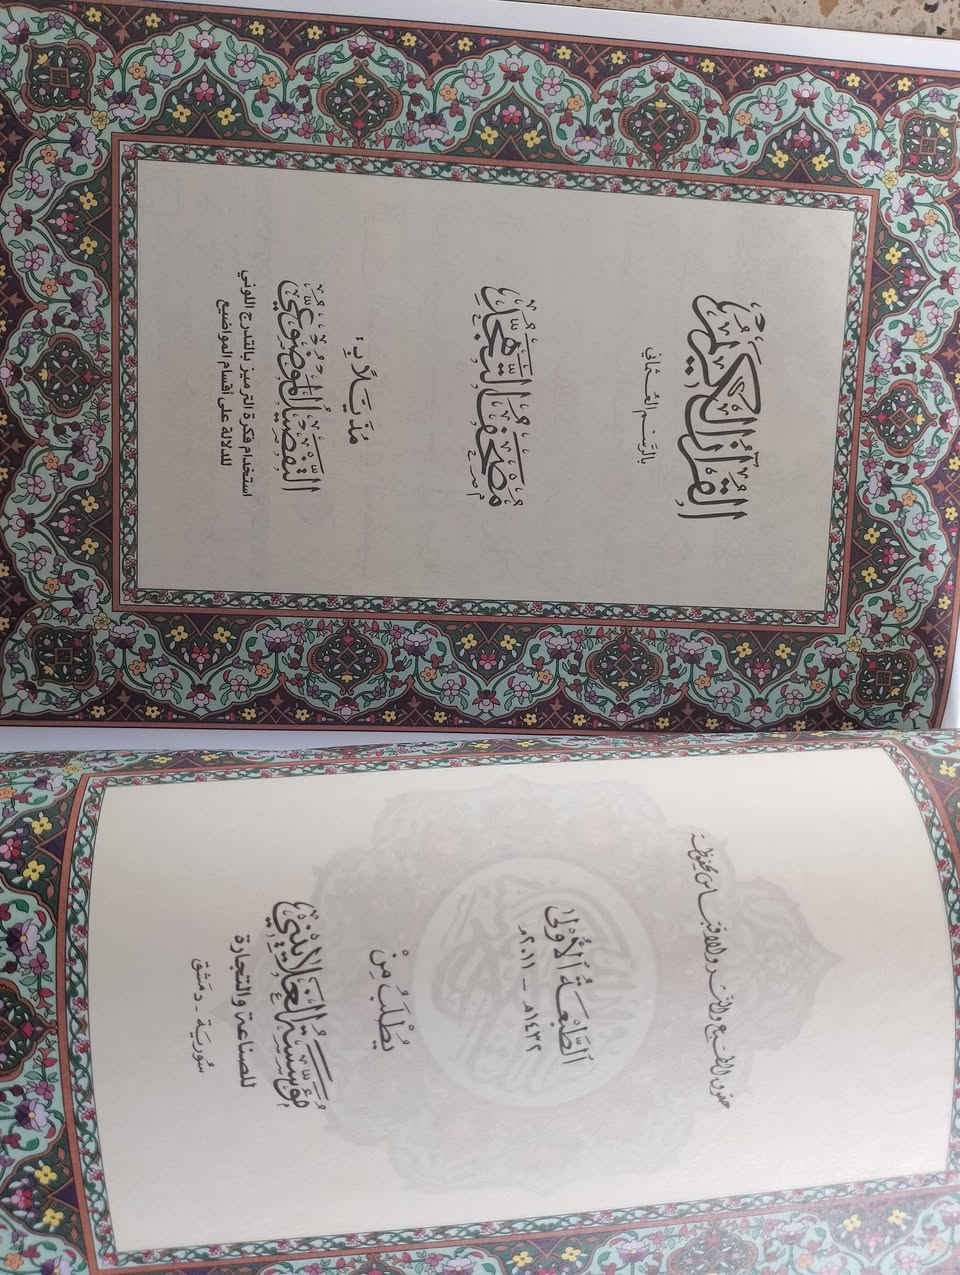 القرآن الكريم
بالرسم العثماني
مصحف التهجد
مذيلا بـ
التفصيل الموضوعي
استخدام فكرة الترميز بالتدرج اللوني
للدلالة على أقسام المواضيع
حقوق الطبع والنشر والاقتباس محفوظة
الطَّبْعَةُ الأُولَى
١٤٣٢هـ - ٢٠١١م
يُطْلَبُ مِنْ
مؤسسة الغلاييني
للصناعة والتجارة
سورية - دمشق